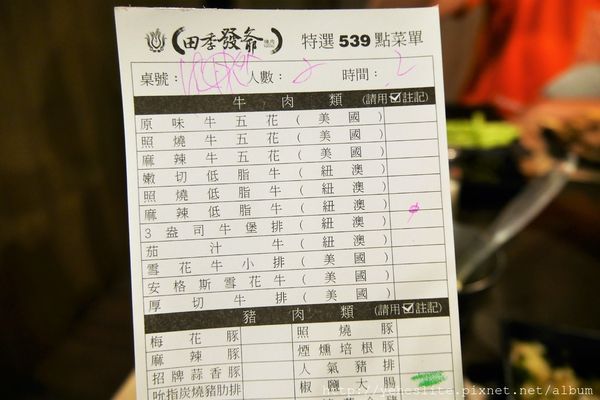 田季發爺 燒肉 特選 539 點菜單
桌號： 人數：2 時間：2
牛肉類 (請用☑註記)
原味牛五花(美國)
照燒牛五花(美國)
麻辣牛五花(美國)
嫩切低脂牛(紐澳)
照燒低脂牛(紐澳)
麻辣低脂牛(紐澳)
3盎司牛堡排(紐澳)
茄汁牛(紐澳)
雪花牛小排(美國)
安格斯雪花牛(美國)
厚切牛排(美國)
豬肉類 (請用☑註記)
梅花豚 照燒豚
麻辣豚 煙燻培根豚
招牌蒜香豚 人氣豬排
吮指炭燒豬肋排 椒鹽大腸